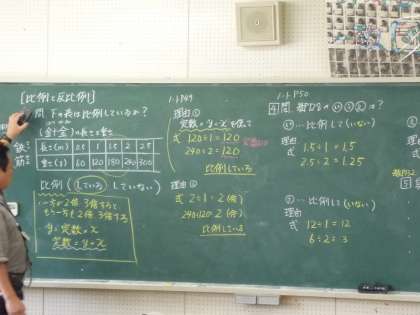 [比例と反比例]
問 下の表は比例しているか?
(針金)の長さと重さ
長さ(m) 0.5 1 1.5 2 2.5
重さ(g) 60 120 180 240 300
比例 (している していない)
一方が2倍 3倍すると
もう一方も2倍 3倍する
y=定数×x
定数=y÷x
ノートP49
理由①
定数=y÷xを使って
式 120÷1=120
240÷2=120
比例している
理由②
式 2÷1=2(倍)
240÷120=2(倍)
比例している
ノートP50
比例して(いない)
理由
式 1.5÷1=1.5
2.5÷2=1.25
比例して(いない)
理由
式 12÷1=12
6÷2=3